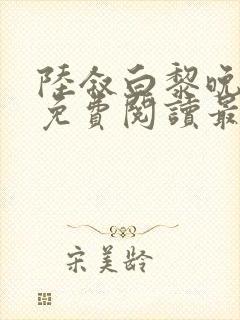 陸敘白黎晚
免費閱讀最
宋美龄